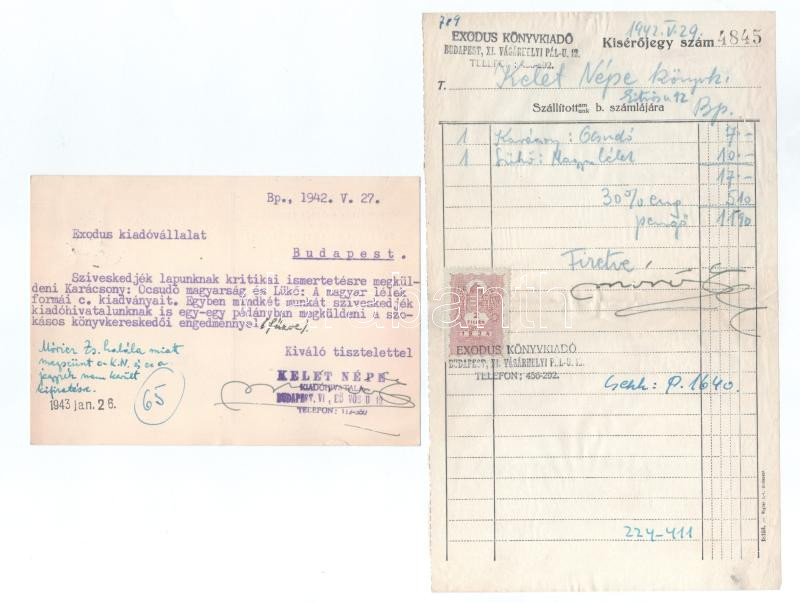 Bp., 1942. V. 27.
Exodus kiadóvállalat
Budapest.
Sziveskedjék lapunknak kritikai ismertetésre megkül-
deni Karácsony: Ocsudó magyarság és Lükő: A magyar lélek
formái c. kiadványait. Egyben mindkét munkát sziveskedjék
kiadóhivatalunknak is egy-egy példányban megküldeni a szo-
kásos könyvkereskedői engedménnyel.
Kiváló tisztelettel
KELET NÉPE
KIADÓHIVATALA
BUDAPEST, VI., EÖTVÖS U 12
TELEFON:
Móricz Zs. halála miatt
megszünt a K.N. és ez a
jegyzék nem került
kifizetésre.
1943 jan. 26.
65
789
1942. V. 29.
EXODUS KÖNYVKIADÓ
BUDAPEST, XI. VÁSÁRHELYI PÁL-U. 12.
Kisérőjegy szám 4845
T. Kelet Népe
Eötvös u 12
Szállítottam
unk b. számlájára
Bp.
1 Karácsony: Ocsudó 7.-
1 Lükő: Magyar lélet 10.-
17.-
30% eng 5 10
pengő 11 90
Fizetve
2 FILLÉR
EXODUS KÖNYVKIADÓ
BUDAPEST, XI. VÁSÁRHELYI PÁL-U. 12.
TELEFON: 456-292.
Csekk: P. 1640.
224-411